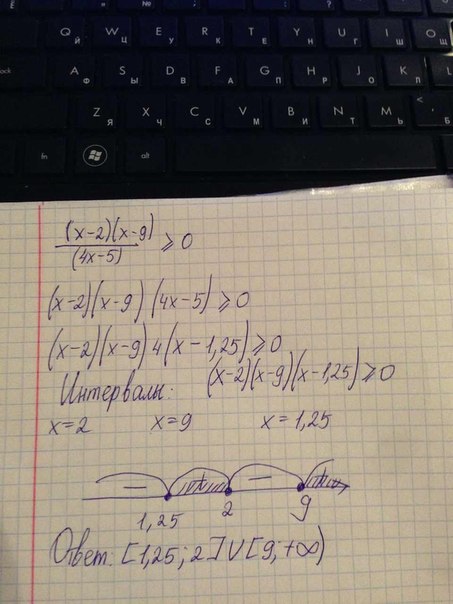 Q Й W Ц E У R К T Е Y Н U Г I Ш O
ock A Ф S Ы D В F А G П H Р J О K Л L
Z Я X Ч C С V М B И N Т M Ь < , Б
fn alt
(x-2)(x-9)/(4x-5) ⩾ 0
(x-2)(x-9)(4x-5) ⩾ 0
(x-2)(x-9)4(x-1,25) ⩾ 0
Интервалы: (x-2)(x-9)(x-1,25) ⩾ 0
x=2 x=9 x=1,25
− + − +
1,25 2 9
Ответ: [1,25; 2] ∪ [9; +∞)